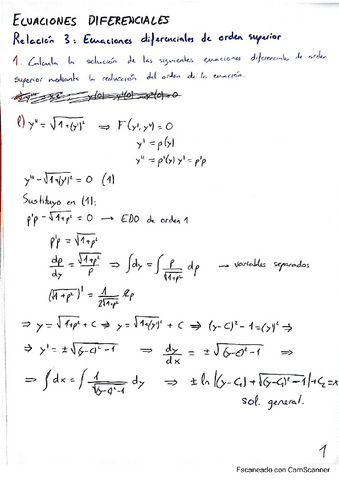 ECUACIONES DIFERENCIALES
Relación 3: Ecuaciones diferenciales de orden superior
1. Calcula la solución de las siguientes ecuaciones diferenciales de orden
superior mediante la reducción del orden de la ecuación.
y(0) y'(0) y''(0)=0
l) y'' = √(1+(y')²) ⇒ F(y', y'') = 0
y' = p(y)
y'' = p'(y) y' = p'p
y'' - √(1+(y')²) = 0 (1)
Sustituyo en (1):
p'p - √(1+p²) = 0 → EDO de orden 1
p'p = √(1+p²)
dp/dy = √(1+p²)/p ⇒ ∫dy = ∫ p/√(1+p²) dp → variables separadas
(√(1+p²))' = 1/(2√(1+p²)) 2p
⇒ y = √(1+p²) + C ⇒ y = √(1+(y')²) + C ⇒ (y-C)² - 1 = (y')² ⇒
⇒ y' = ± √((y-C)² - 1) ⇒ dy/dx = ± √((y-C)² - 1) ⇒
⇒ ∫dx = ∫ 1/√((y-C)²-1) dy ⇒ ± ln |(y-C₁) + √((y-C₁)² - 1)| + C₂ = x
sol. general.
1
Escaneado con CamScanner